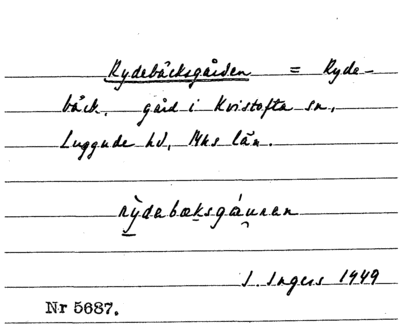 Rydebäcksgården = Ryde-
bäck, gård i Kvistofta sn,
Luggude hd, Mhs län.
rỳdabæksgáunen
I. Ingers 1949
Nr 5687.